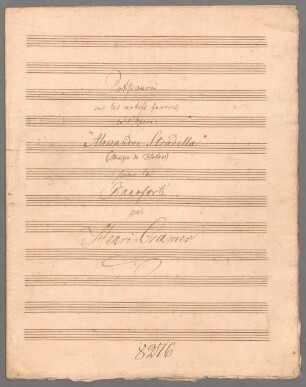 Potpourri
sur les motifs favoris
de l'Opera
"Alessandro Stradella"
(Musique de Flotow)
pour le
Pianoforte
par
Henri Cramer
8276